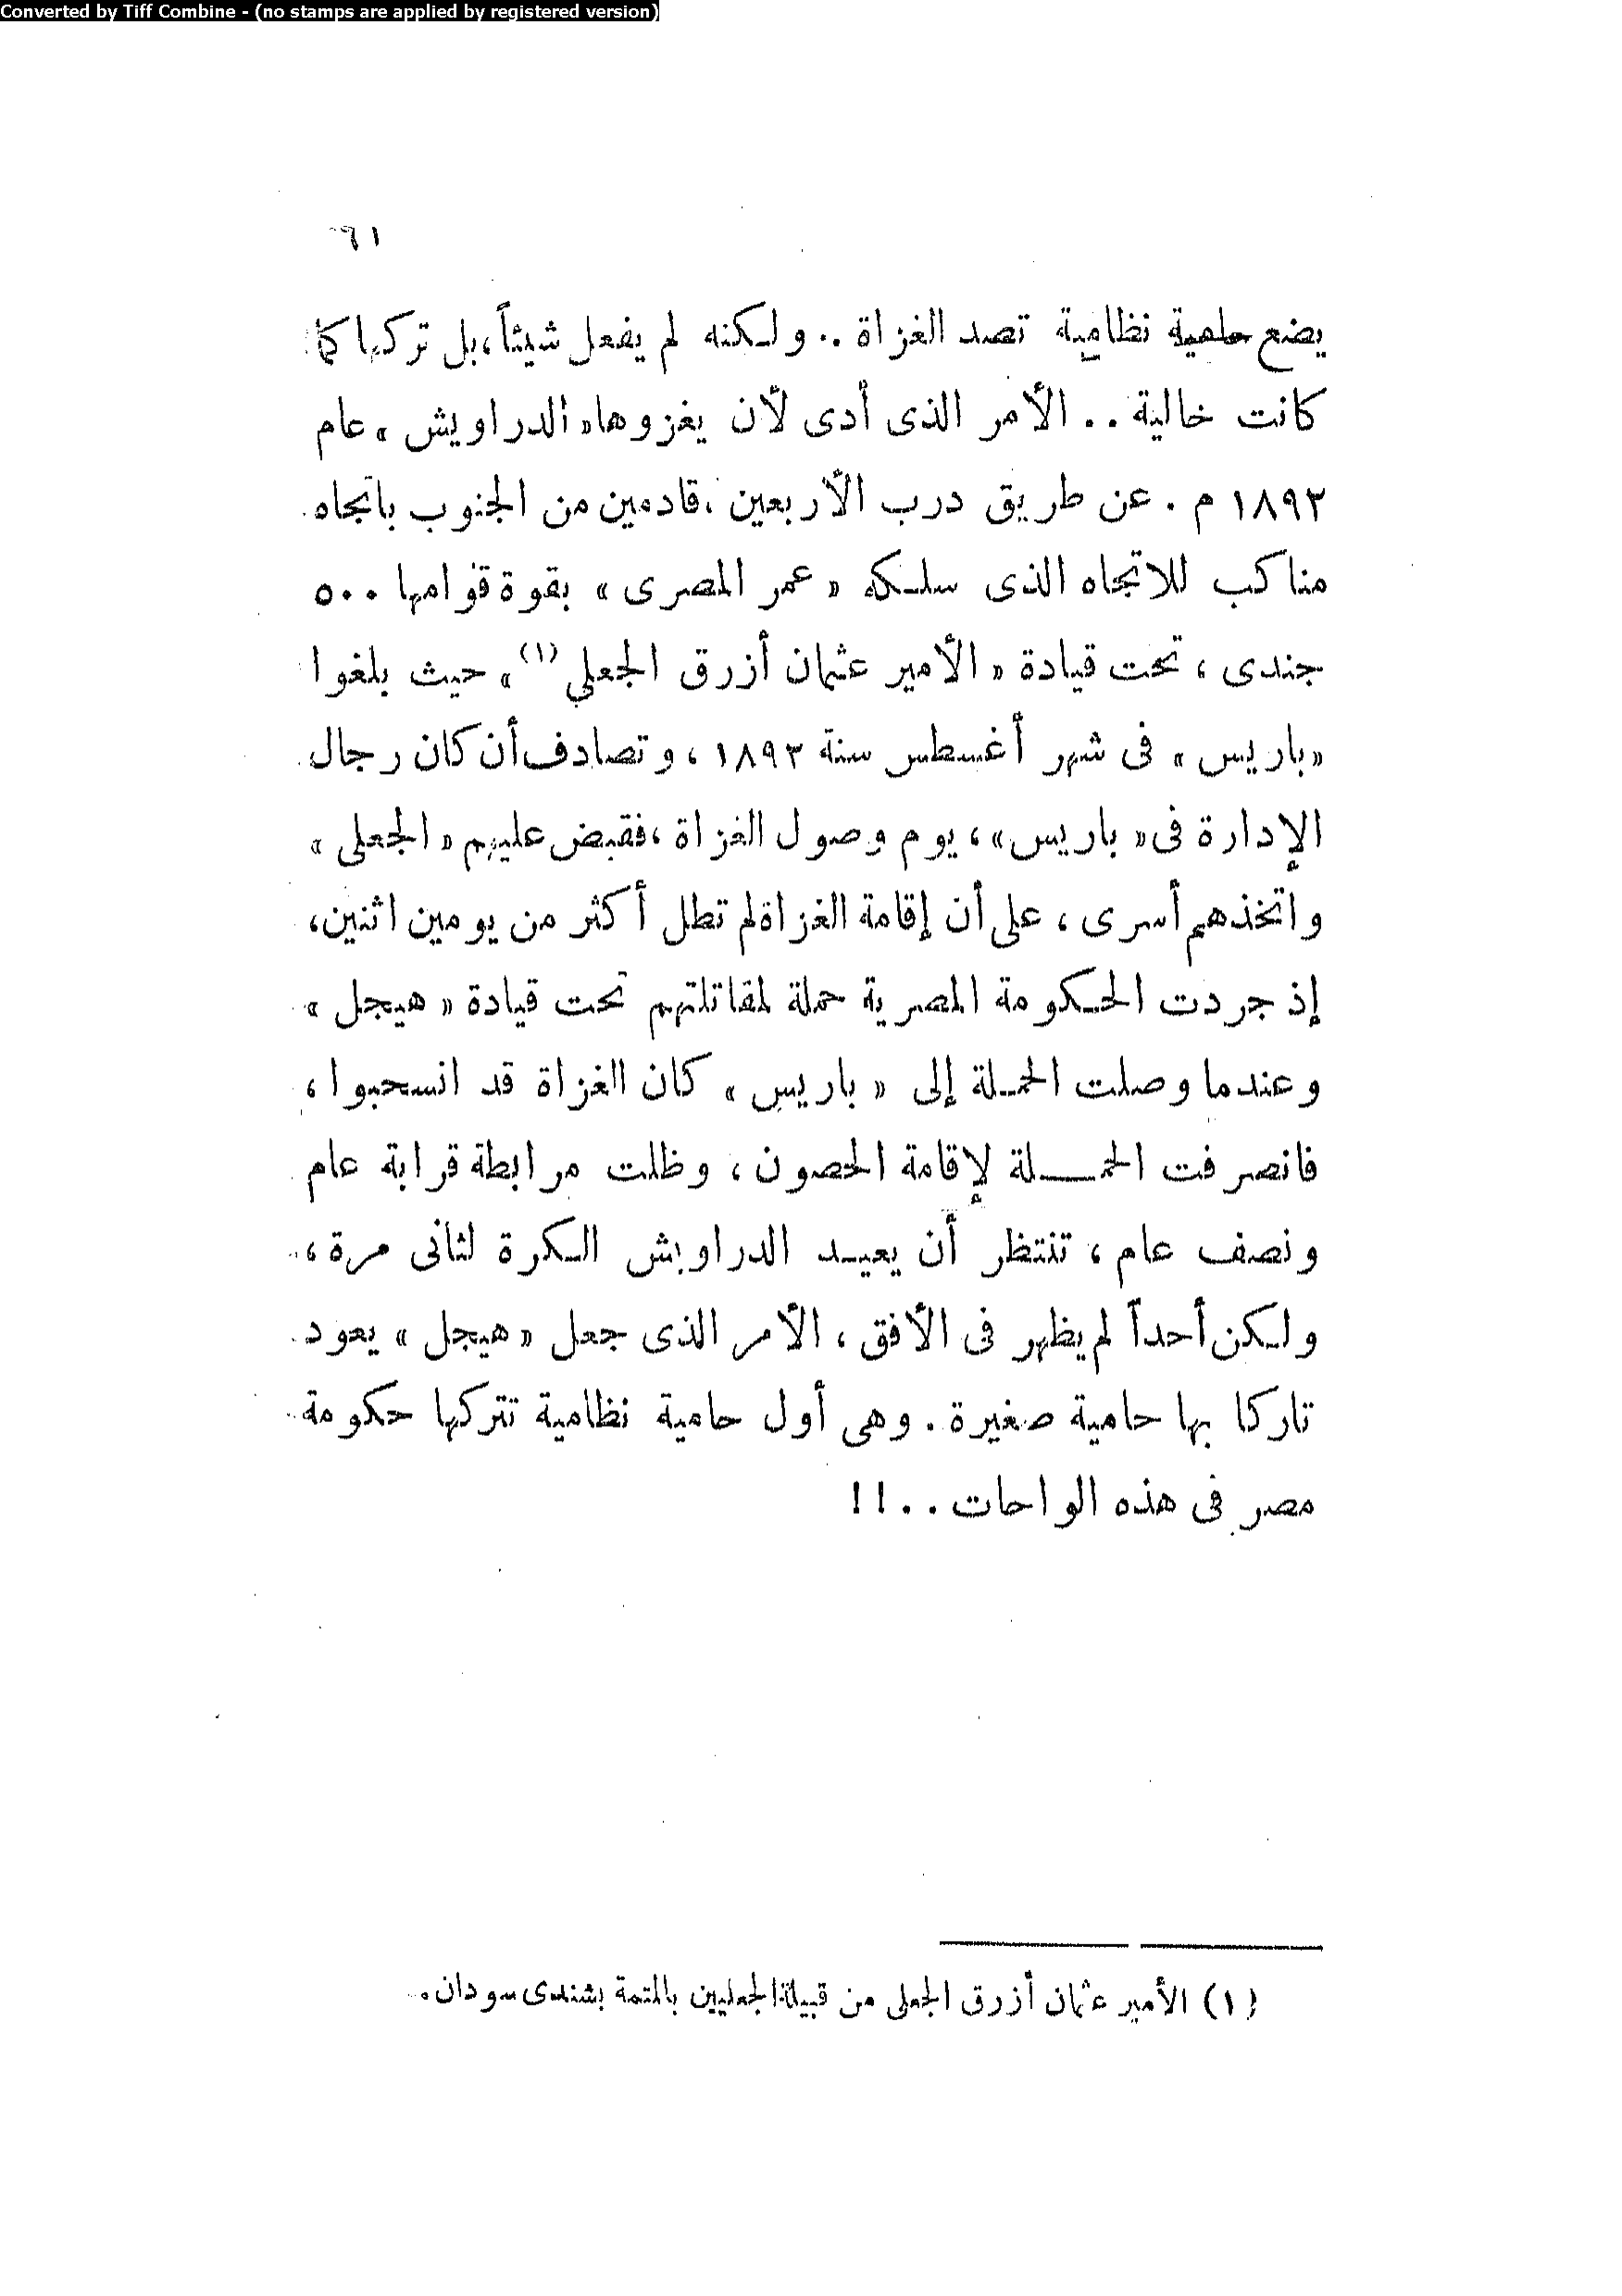 Converted by Tiff Combine - (no stamps are applied by registered version)
٦١
يضع حامية نظامية تصد الغزاة .. ولكنه لم يفعل شيئاً، بل تركها كما
كانت خالية .. الأمر الذى أدى لأن يغزوها « الدراويش » عام
١٨٩٣ م . عن طريق درب الأربعين ، قادمين من الجنوب باتجاه
مناكب للاتجاه الذى سلكه « عمر المصرى » بقوة قوامها ٥٠٠
جندى ، تحت قيادة « الأمير عثمان أزرق الجعلي (١) » حيث بلغوا
« باريس » فى شهر أغسطس سنة ١٨٩٣ ، وتصادف أن كان رجال
الإدارة فى « باريس » ، يوم وصول الغزاة ، فقبض عليهم « الجعلى »
واتخذهم أسرى ، على أن إقامة الغزاة لم تطل أكثر من يومين اثنين ،
إذ جردت الحكومة المصرية حملة لمقاتلتهم تحت قيادة « هيجل »
وعندما وصلت الحملة إلى « باريس » كان الغزاة قد انسحبوا ،
فانصرفت الحملة لإقامة الحصون ، وظلت مرابطة قرابة عام
ونصف عام ، تنتظر أن يعيد الدراويش الكرة لثانى مرة ،
ولكن أحداً لم يظهر فى الأفق ، الأمر الذى جعل « هيجل » يعود
تاركا بها حامية صغيرة . وهى أول حامية نظامية تتركها حكومة
مصر فى هذه الواحات . . !!
(١) الأمير عثمان أزرق الجعلى من قبيلة الجعليين بالمتمة بشندى سودان .